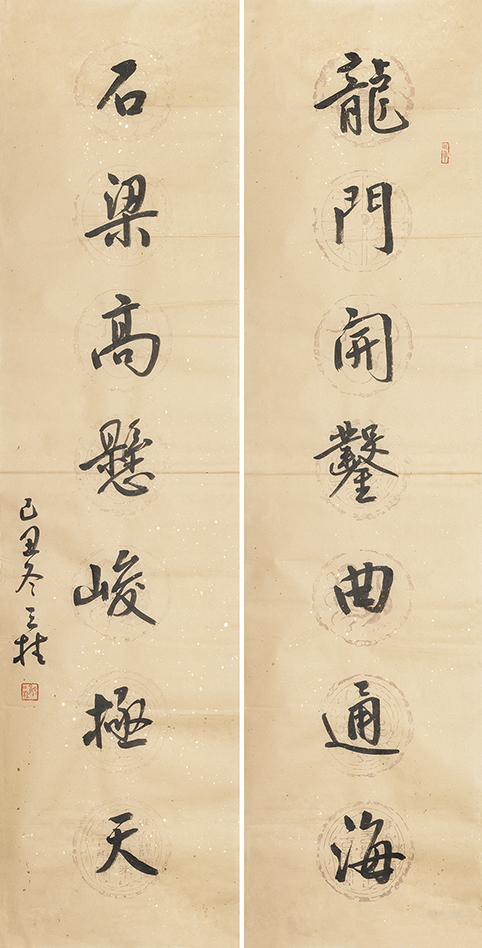 龍門開鑿曲通海
石梁高懸峻極天
己丑冬三桂